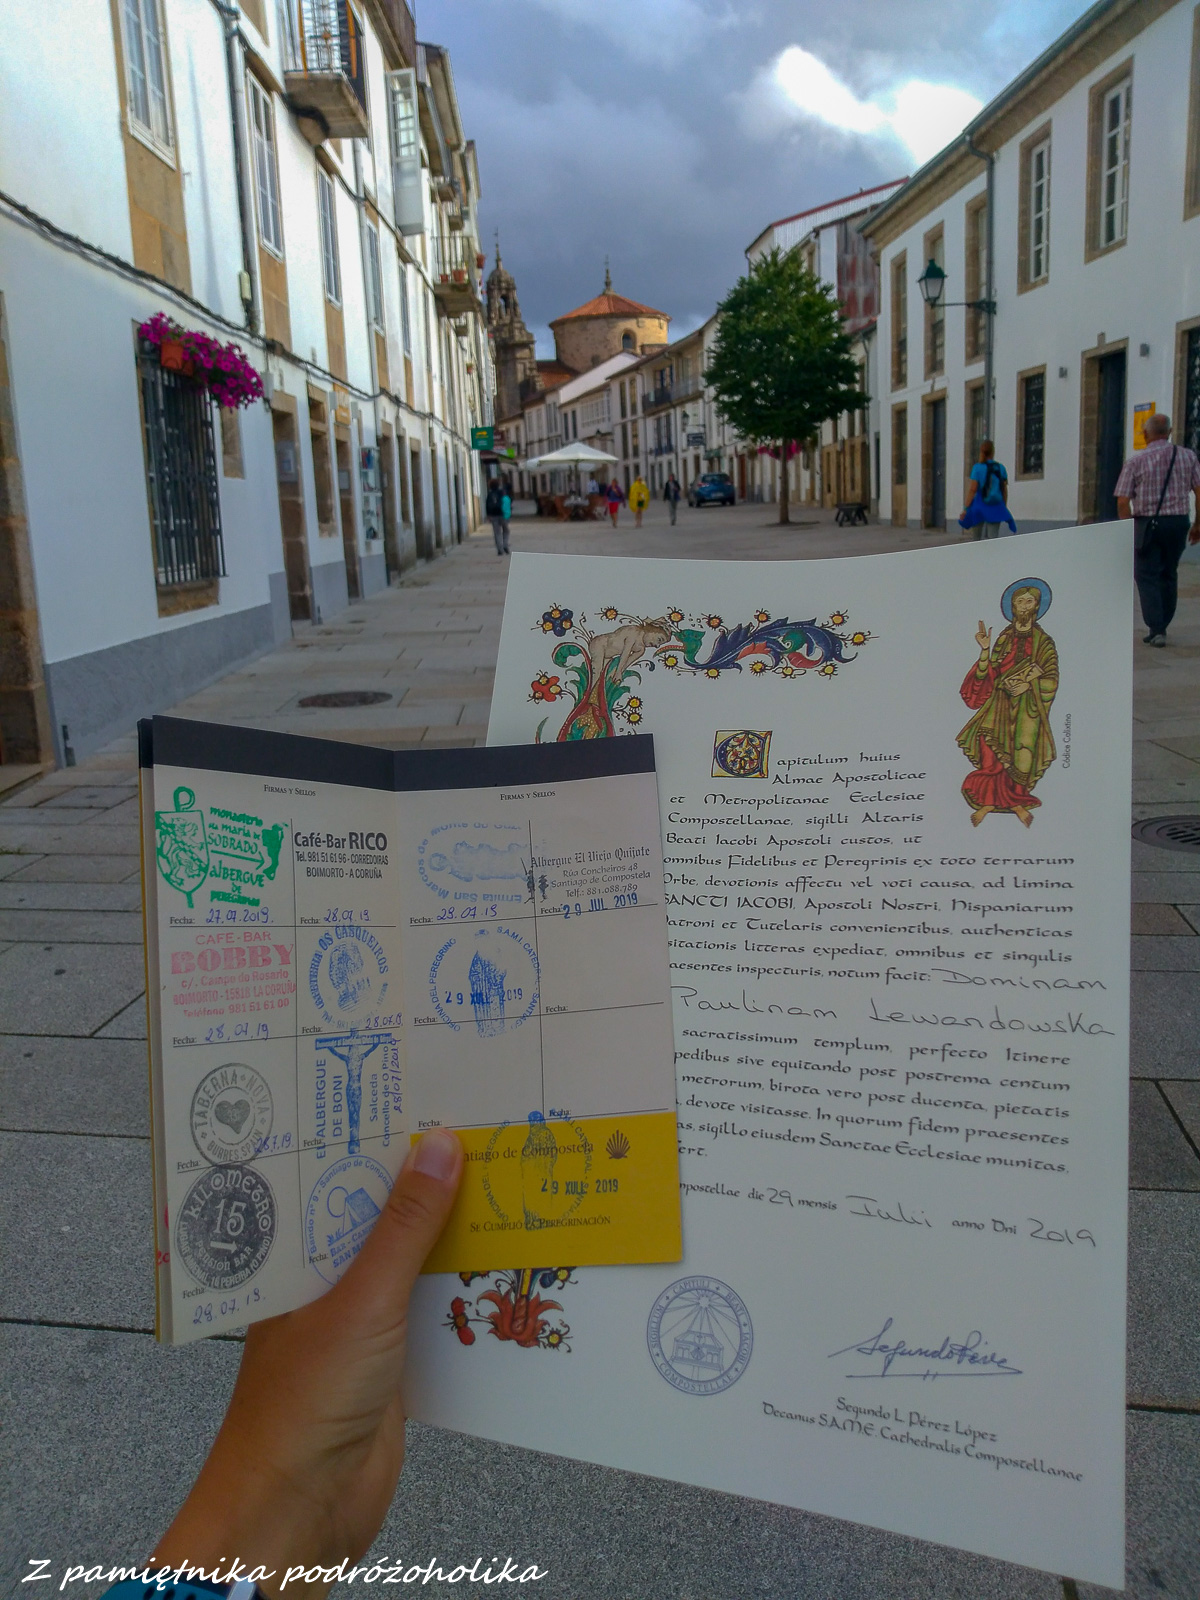 FIRMAS Y SELLOS
monasterio
sta maria de
SOBRADO
albergue
DE
PEREGRINOS
Fecha: 27.07.2019.
Café-Bar RICO
Tel. 981 51 61 96 - CORREDOIRAS
BOIMORTO - A CORUÑA
Fecha: 28.07.19
CAFE-BAR
BOBBY
c/. Campo do Rosario
BOIMORTO - 15818 LA CORUÑA
Teléfono 981 51 61 00
28.07.19
OS CASQUEIROS
Fecha: 28.07.19
TABERNA NOVA
BURRES
Fecha:
EL ALBERGUE
DE BONI
Salceda
Concello de O Pino
28/07/2019
Fecha:
KILOMETRO
15
Fecha:
29.07.19.
Santiago de
Fecha:
FIRMAS Y SELLOS
Ermita San Marcos
Fecha: 29.07.19
Albergue El Viejo Quijote
Rúa Concheiros 48
Santiago de Compostela
Telf.: 881.088.789
Fecha: 29 JUL 2019
OFICINA DEL PEREGRINO
S.A.M.I. CATEDRAL
29 XULL 2019
Fecha:
Fecha:
Fecha:
ntiago de Compostela
29 XULL 2019
SE CUMPLIÓ LA PEREGRINACIÓN
Códice Calixtino
Capitulum huius
Almae Apostolicae
et Metropolitanae Ecclesiae
Compostellanae, sigilli Altaris
Beati Iacobi Apostoli custos, ut
omnibus Fidelibus et Peregrinis ex toto terrarum
Orbe, devotionis affectu vel voti causa, ad limina
SANCTI IACOBI, Apostoli Nostri, Hispaniarum
atroni et Tutelaris convenientibus, authenticas
sitationis litteras expediat, omnibus et singulis
aesentes inspecturis, notum facit: Dominam
Paulinam Lewandowska
sacratissimum templum, perfecto Itinere
pedibus sive equitando post postrema centum
metrorum, birota vero post ducenta, pietatis
, devote visitasse. In quorum fidem praesentes
as, sigillo eiusdem Sanctae Ecclesiae munitas,
fert.
mpostellae die 29 mensis Iulii anno Dni 2019
SIGILLUM CAPITULI BEATI IACOBI COMPOSTELLAE
Segundo L. Pérez López
Decanus S.A.M.E. Cathedralis Compostellanae
Z pamiętnika podróżoholika